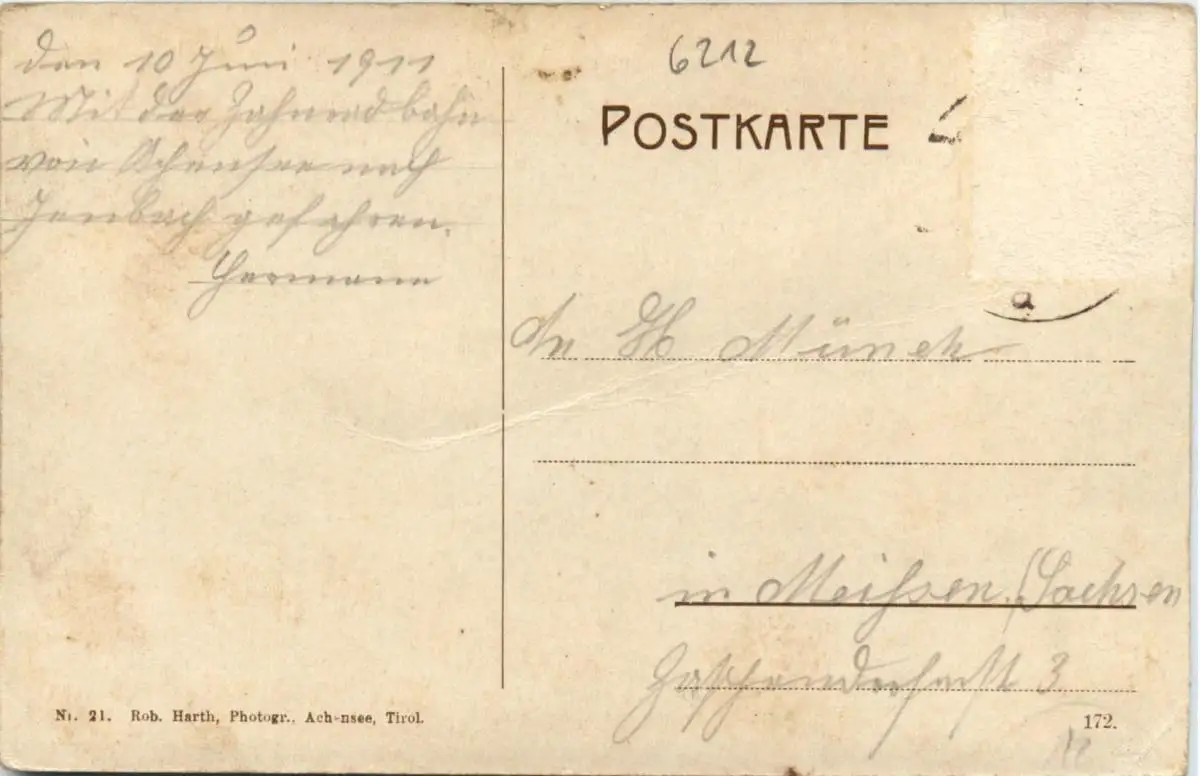 den 10 Juni 1911
Mit der Zahnradbahn
von Achensee nach
Jenbach gefahren.
Hermann
6212
POSTKARTE
a
An H Münch
in Meißen (Sachsen
3
Nr. 21. Rob. Harth, Photogr., Achensee, Tirol.
172.